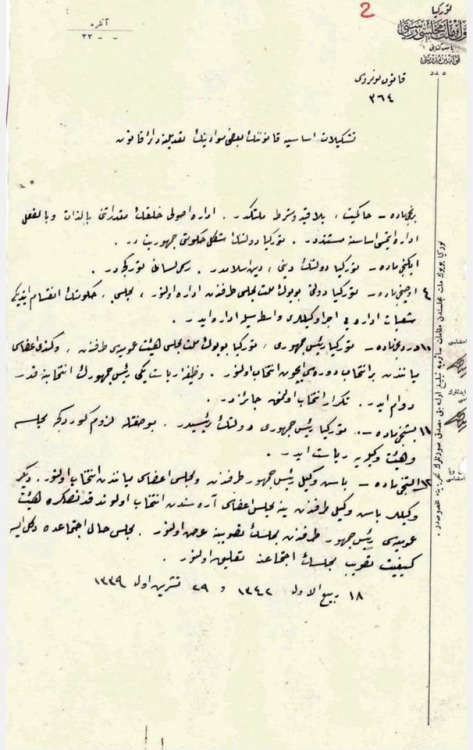 2
توركيا
بيوك ملت مجلسى رياستى
آنقره
٣٣
عدد
قانون نومروسى
٣٦٤
تشكيلات اساسيه قانوننك بعض موادينك تعديلنه دائر قانون
برنجى ماده – حاكميت ، بلا قيد و شرط ملتكدر . اداره اصولى خلقك مقدراتنى بالذات و بالفعل
اداره ايتمسى اساسنه مستنددر . توركيا دولتنك شكل حكومتى جمهوريت در .
ايكنجى ماده – توركيا دولتنك دينى ، دين اسلامدر . رسمى لسانى توركجه در .
٤ اوچنجى ماده – توركيا دولتى بويوك ملت مجلسى طرفندن اداره اولنور ، مجلس ، حكومتك انقسام ايتديكى
شعبات اداره يى اجرا وكيللرى واسطه سيله اداره ايدر .
١٠ دردنجى ماده – توركيا رئيس جمهورى ، توركيا بويوك ملت مجلسى هيئت عموميه سى طرفندن ، و كندى اعضاسى
مياننندن بر انتخاب دوره سى ايچون انتخاب اولنور . وظيفه رياست يكى رئيس جمهورك انتخابنه قدر
دوام ايدر . تكرار انتخاب اولنمق جائزدر .
١١ بشنجى ماده – توركيا رئيس جمهورى دولتك رئيسيدر . بو صفتله لزوم كوردكجه مجلسه
و هيئت وكيله يه رياست ايدر .
١٢ آلتنجى ماده – باش وكيل رئيس جمهور طرفندن و مجلس اعضاسى مياننندن انتخاب اولنور . ديكر
وكيللر باش وكيل طرفندن ينه مجلس اعضاسى آره سندن انتخاب اولوندقدن صكره هيئت
عموميه سى رئيس جمهور طرفندن مجلسك تصويبنه عرض اولنور . مجلس حال اجتماعده دكل ايسه
كيفيت تصويب مجلسك اجتماعنه تعليق اولنور .
١٨ ربيع الاول ١٣٤٢ و ٢٩ تشرين اول ١٣٣٩